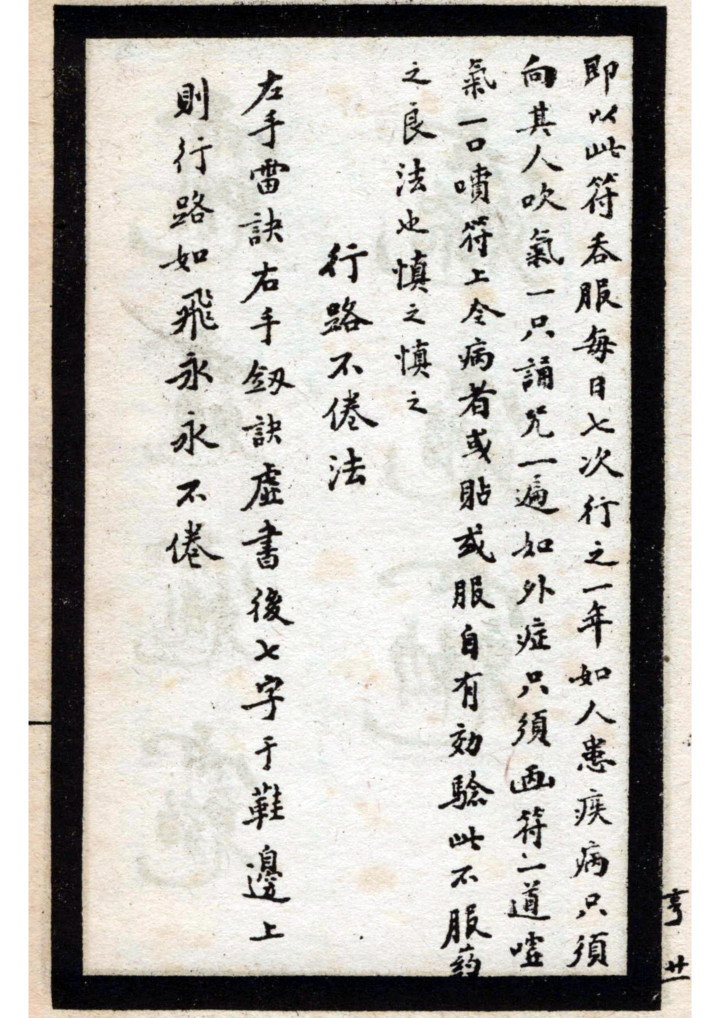 即以此符吞服每日七次行之一年如人患疾病只須
向其人吹氣一只誦咒一遍如外症只須画符一道噓
氣一口噴符上令病者或貼或服自有効驗此不服药
之良法也慎之慎之
行路不倦法
左手雷訣右手劔訣虛書後七字于鞋邊上
則行路如飛永永不倦
亨 廿